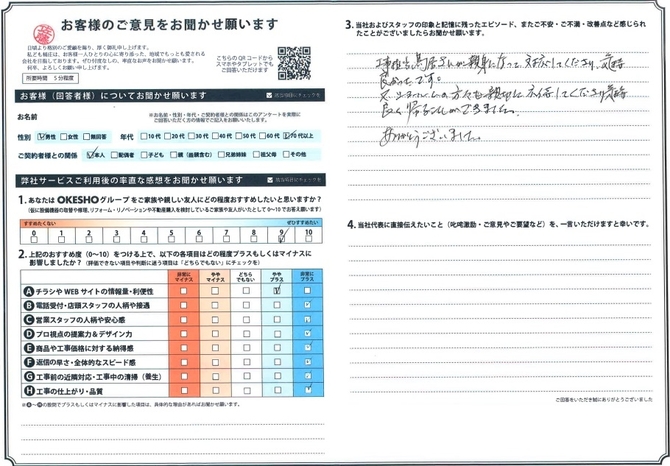 お客様のご意見をお聞かせ願います
日頃より格別のご愛顧を賜り、厚く御礼申し上げます。
何卒、よろしくお願い申し上げます。
所要時間 5分程度
こちらのQRコードから
スマホやタブレットでも
ご回答いただけます
お客様（回答者様）についてお聞かせ願います
お名前
※お名前・性別・年代・ご契約者様との関係はこのアンケートを実際に
ご回答いただく方の情報でご記入をお願いします。
性別 男性 女性 無回答 年代 10代 20代 30代 40代 50代 60代 70代以上
ご契約者様との関係 本人 配偶者 子ども 親（血親含む） 兄弟姉妹 祖父母 その他
弊社サービスご利用後の率直な感想をお聞かせ願います
1. あなたは OKESHOグループ をご家族や親しい友人にどの程度おすすめしたいと思いますか？
（仮に設備機器の取替や修理、リフォーム・リノベーションや不動産購入を検討しているご家族や友人がいたとして0～10でお答え願います）
すすめたくない ぜひすすめたい
0 1 2 3 4 5 6 7 8 9 10
2. 上記のおすすめ度（0～10）をつける上で、以下の各項目はどの程度プラスもしくはマイナスに
影響しましたか？（評価できない項目や判断に迷う項目は「どちらでもない」にチェックを）
非常に マイナス やや マイナス どちら でもない やや プラス 非常に プラス
A チラシやWEBサイトの情報量・利便性
B 電話受付・店頭スタッフの人柄や接遇
C 営業スタッフの人柄や安心感
D プロ視点の提案力＆デザイン力
E 商品や工事価格に対する納得感
F 返信の早さ・全体的なスピード感
G 工事前の近隣対応・工事中の清掃（養生）
H 工事の仕上がり・品質
※A～Hの設問でプラスもしくはマイナスに影響した項目は、具体的な理由があればお聞かせ願います。
3. 当社およびスタッフの印象と記憶に残ったエピソード、またご不安・ご不満・改善点など感じられ
たことがございましたらお聞かせ願います。
良かったです。
良く帰ることができました。
ありがとうございました。
4. 当社代表に直接伝えたいこと（叱咤激励・ご意見やご要望など）を、一言いただけますと幸いです。
ご回答をいただき誠にありがとうございました